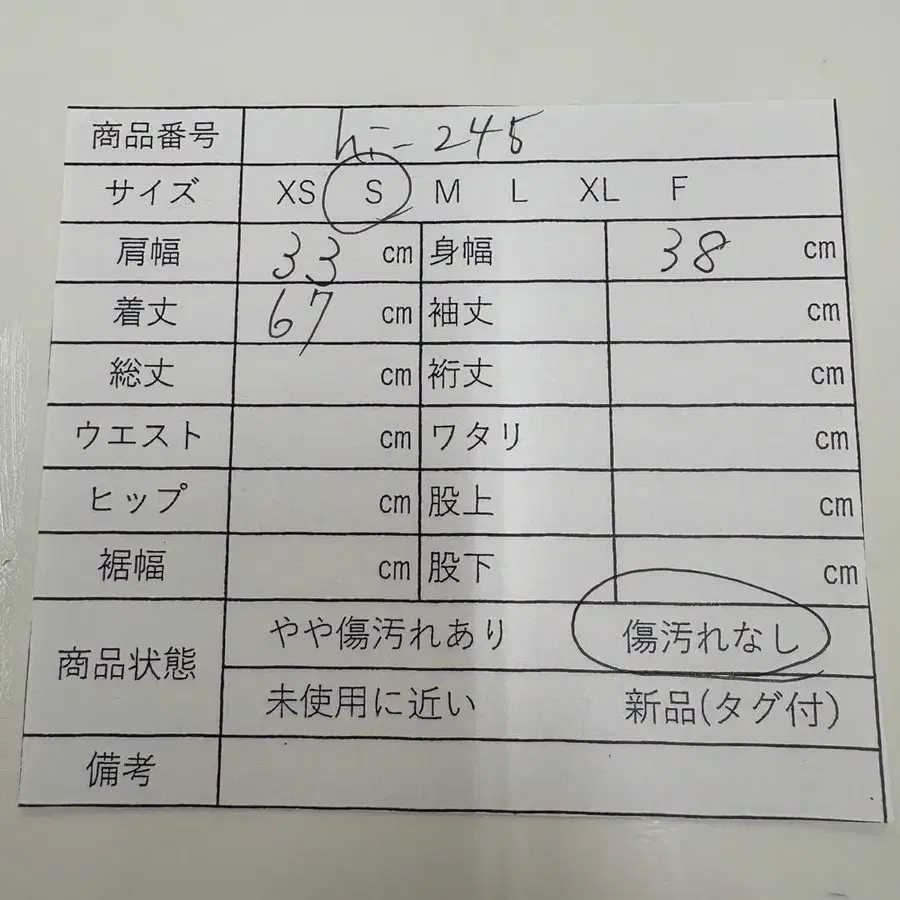 商品番号 hi-245
サイズ XS S M L XL F
肩幅 33 cm 身幅 38 cm
着丈 67 cm 袖丈 cm
総丈 cm 裄丈 cm
ウエスト cm ワタリ cm
ヒップ cm 股上 cm
裾幅 cm 股下 cm
やや傷汚れあり 傷汚れなし
商品状態
未使用に近い 新品(タグ付)
備考